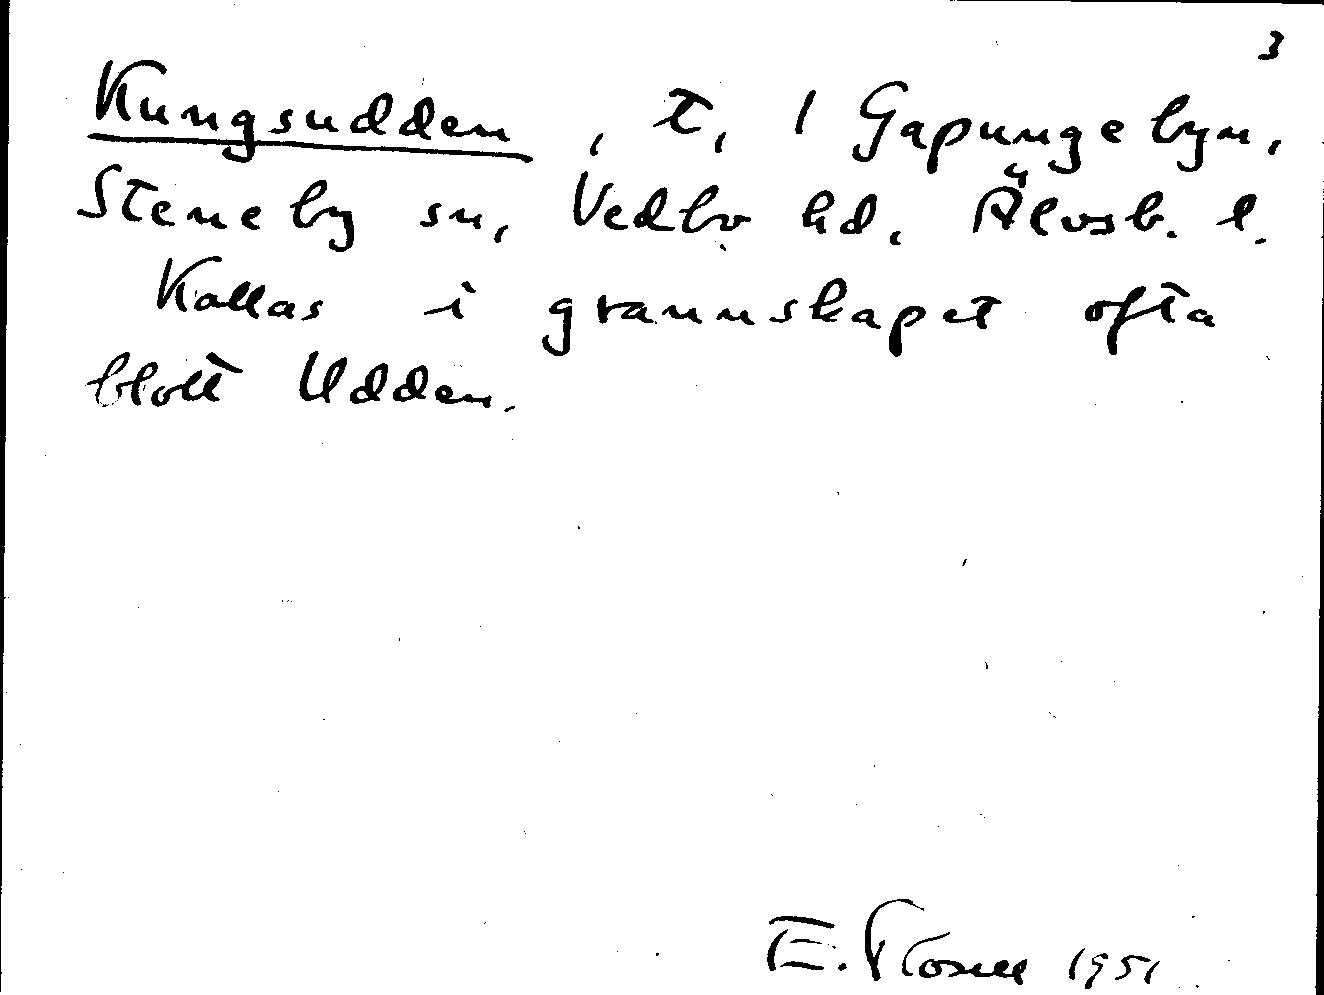 3
Kungsudden, t, 1 Gapungebyn,
Steneby sn, Vedbo hd, Älvsb. l.
Kallas i grannskapet ofta
blott Udden.
E. 1951